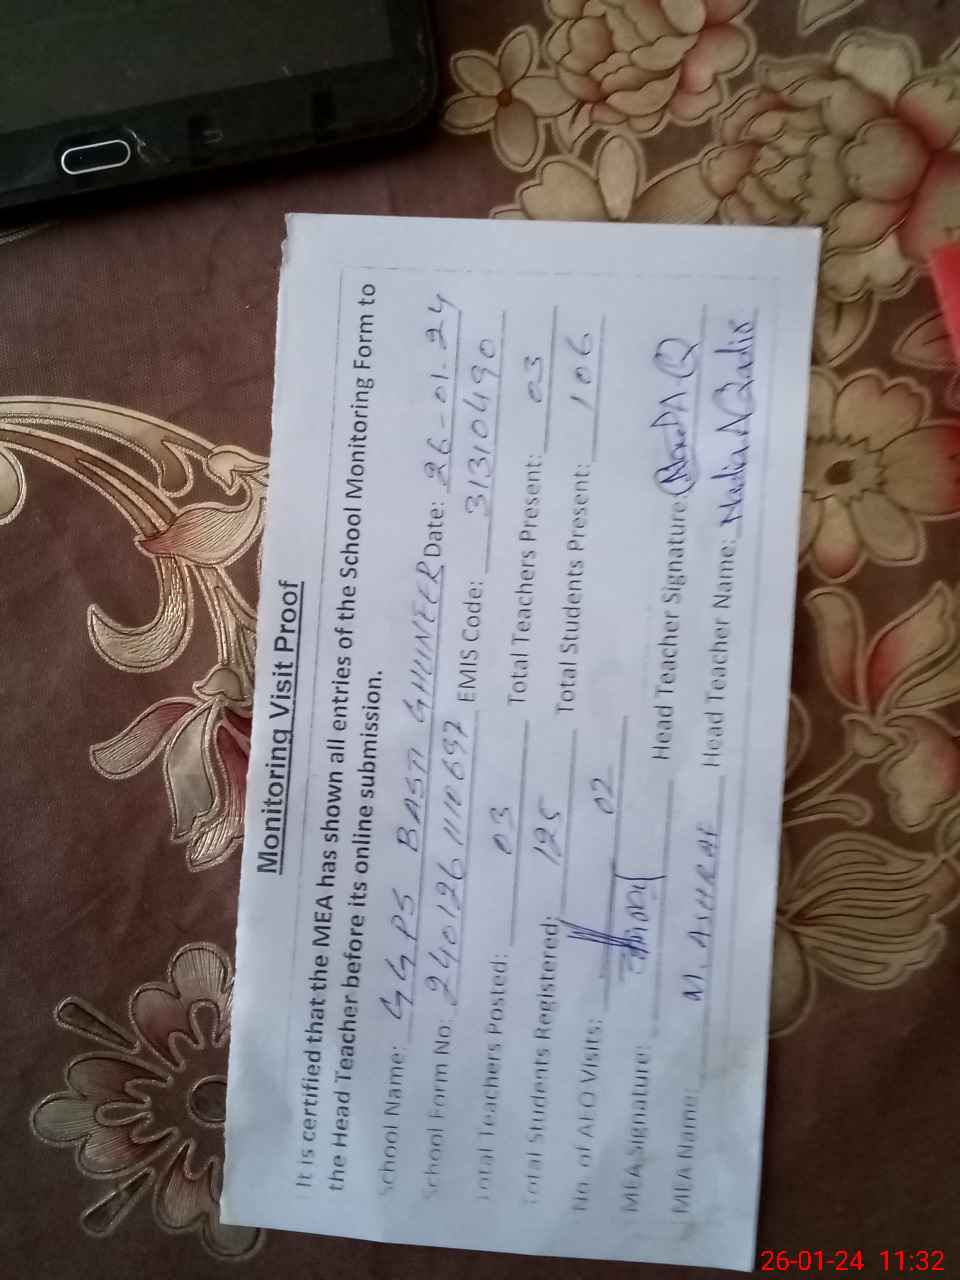 Monitoring Visit Proof
It is certified that the MEA has shown all entries of the School Monitoring Form to
the Head Teacher before its online submission.
School Name: GGPS BASTI GHUNEER Date: 26-01-24
School Form No: 240126110697 EMIS Code: 31310490
Total Teachers Posted: 03 Total Teachers Present: 03
Total Students Registered: 125 Total Students Present: 106
No. of AEO Visits: 02
MEA Signature: Head Teacher Signature:
MEA Name: M. ASHRAF Head Teacher Name: Nadia Qadir
26-01-24 11:32